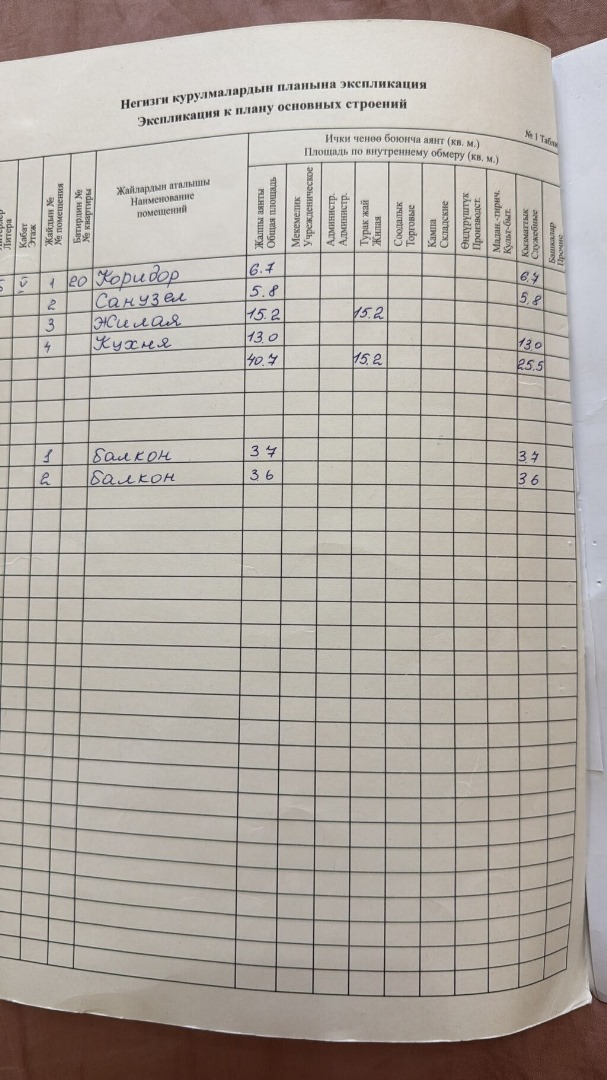 Негизги курулмалардын планына экспликация
Экспликация к плану основных строений
№ 1
Ички ченөө боюнча аянт (кв. м.)
Площадь по внутреннему обмеру (кв. м.)
Литера
Кабат Этаж
Жайдын № № помещения
Батирдин № № квартиры
Жайлардын аталышы Наименование помещений
Жалпы аянты Общая площадь
Мекемелик Учрежденическое
Администр. Администр.
Турак жай Жилая
Соодалык Торговые
Кампа Складские
Өндүрүштүк Производст.
Мадан.-тирич. Культ-быт.
Кызматтык Служебные
Башкалар Прочие
V 1 20 Коридор 6.7 6.7
2 Санузел 5.8 5.8
3 Жилая 15.2 15.2
4 Кухня 13.0 13.0
40.7 15.2 25.5
1 Балкон 3.7 3.7
2 Балкон 3.6 3.6